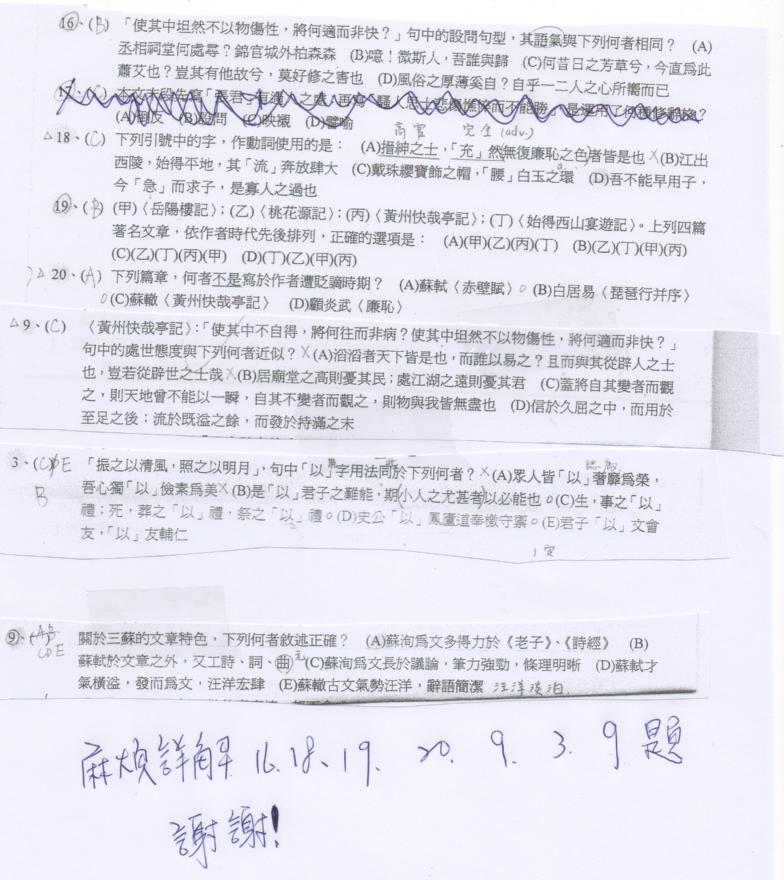 16、(B) 「使其中坦然不以物傷性，將何適而非快？」句中的設問句型，其語氣與下列何者相同？ (A)
丞相祠堂何處尋？錦官城外柏森森 (B)噫！微斯人，吾誰與歸 (C)何昔日之芳草兮，今直為此
蕭艾也？豈其有他故兮，莫好修之害也 (D)風俗之厚薄奚自？自乎一二人之心所嚮而已
(B)設問 (C)映襯 (D)譬喻
完全(adv.)
△18、(C) 下列引號中的字，作動詞使用的是： (A)搢紳之士，「充」然無復廉恥之色者皆是也 ×(B)江出
西陵，始得平地，其「流」奔放肆大 (C)戴珠纓寶飾之帽，「腰」白玉之環 (D)吾不能早用子，
今「急」而求子，是寡人之過也
19、(B) (甲)〈岳陽樓記〉；(乙)〈桃花源記〉；(丙)〈黃州快哉亭記〉；(丁)〈始得西山宴遊記〉。上列四篇
著名文章，依作者時代先後排列，正確的選項是： (A)(甲)(乙)(丙)(丁) (B)(乙)(丁)(甲)(丙)
(C)(乙)(丁)(丙)(甲) (D)(丁)(乙)(甲)(丙)
△20、(A) 下列篇章，何者不是寫於作者遭貶謫時期？ (A)蘇軾〈赤壁賦〉○ (B)白居易〈琵琶行并序〉
○(C)蘇轍〈黃州快哉亭記〉 (D)顧炎武〈廉恥〉
△9、(C) 〈黃州快哉亭記〉：「使其中不自得，將何往而非病？使其中坦然不以物傷性，將何適而非快？」
句中的處世態度與下列何者近似？×(A)滔滔者天下皆是也，而誰以易之？且而與其從辟人之士
也，豈若從辟世之士哉 ×(B)居廟堂之高則憂其民；處江湖之遠則憂其君 (C)蓋將自其變者而觀
之，則天地曾不能以一瞬，自其不變者而觀之，則物與我皆無盡也 (D)信於久屈之中，而用於
至足之後；流於既溢之餘，而發於持滿之末
3、(C)DE 「振之以清風，照之以明月」，句中「以」字用法同於下列何者？×(A)眾人皆「以」奢靡為榮，
B 吾心獨「以」儉素為美×(B)是「以」君子之難能，期小人之尤甚者以必能也○(C)生，事之「以」
禮；死，葬之「以」禮，祭之「以」禮○(D)史公「以」鳳廬道奉檄守禦○(E)君子「以」文會
友，「以」友輔仁
9、 關於三蘇的文章特色，下列何者敘述正確？ (A)蘇洵為文多得力於《老子》、《詩經》 (B)
CDE 蘇軾於文章之外，又工詩、詞、曲(C)蘇洵為文長於議論，筆力強勁，條理明晰 (D)蘇軾才
氣橫溢，發而為文，汪洋宏肆 (E)蘇轍古文氣勢汪洋，辭語簡潔 汪洋淡泊
麻煩詳解 16.18、19. 20. 9. 3. 9 題
謝謝!